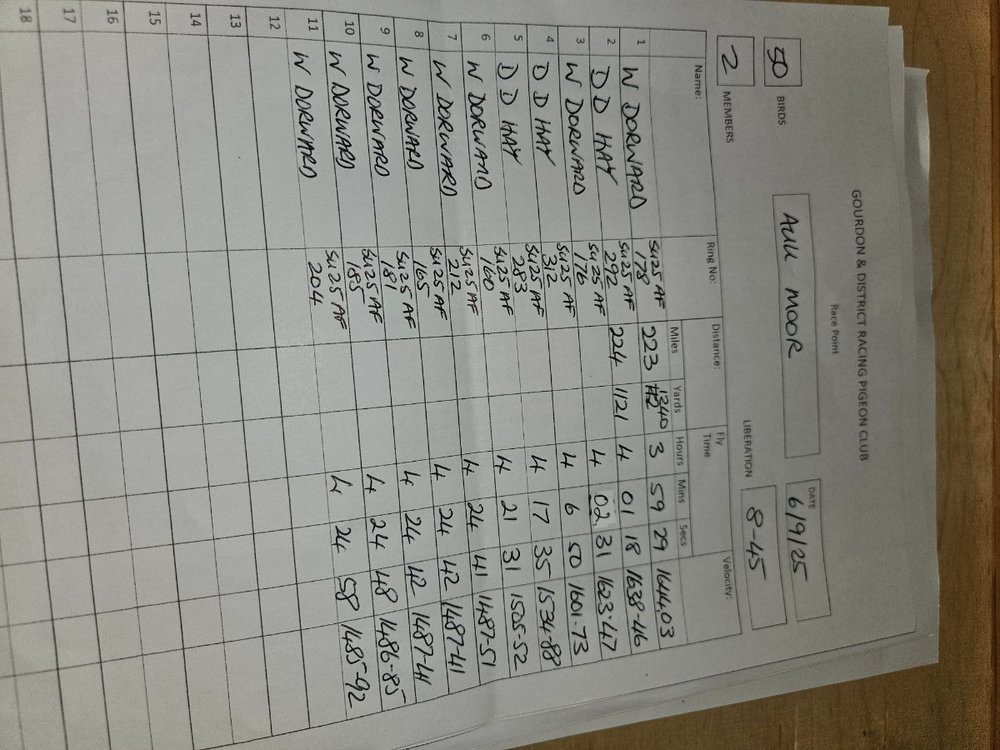 GOURDON & DISTRICT RACING PIGEON CLUB
Race Point
DATE
50 BIRDS AUK MOOR 6/9/25
2 MEMBERS LIBERATION 8-45
Name: Ring No: Distance: Fly Time Velocity:
Miles Yards Hours Mins Secs
1 W DORWARD SU25 AF 178 223 1340 3 59 29 1644.03
2 D D HAY SU25 AF 292 224 1121 4 01 18 1638-46
3 W DORWARD SU25 AF 176 4 02 31 1623-47
4 D D HAY SU25 AF 312 4 6 50 1601-73
5 D D HAY SU25 AF 283 4 17 35 1534-88
6 W DORWARD SU25 AF 160 4 21 31 1505-52
7 W DORWARD SU25 AF 212 4 24 41 1487-51
8 W DORWARD SU25 AF 165 4 24 42 1487-41
9 W DORWARD SU25 AF 181 4 24 42 1487-41
10 W DORWARD SU25 AF 185 4 24 48 1486-85
11 W DORWARD SU25 AF 204 4 24 58 1485-92
12
13
14
15
16
17
18